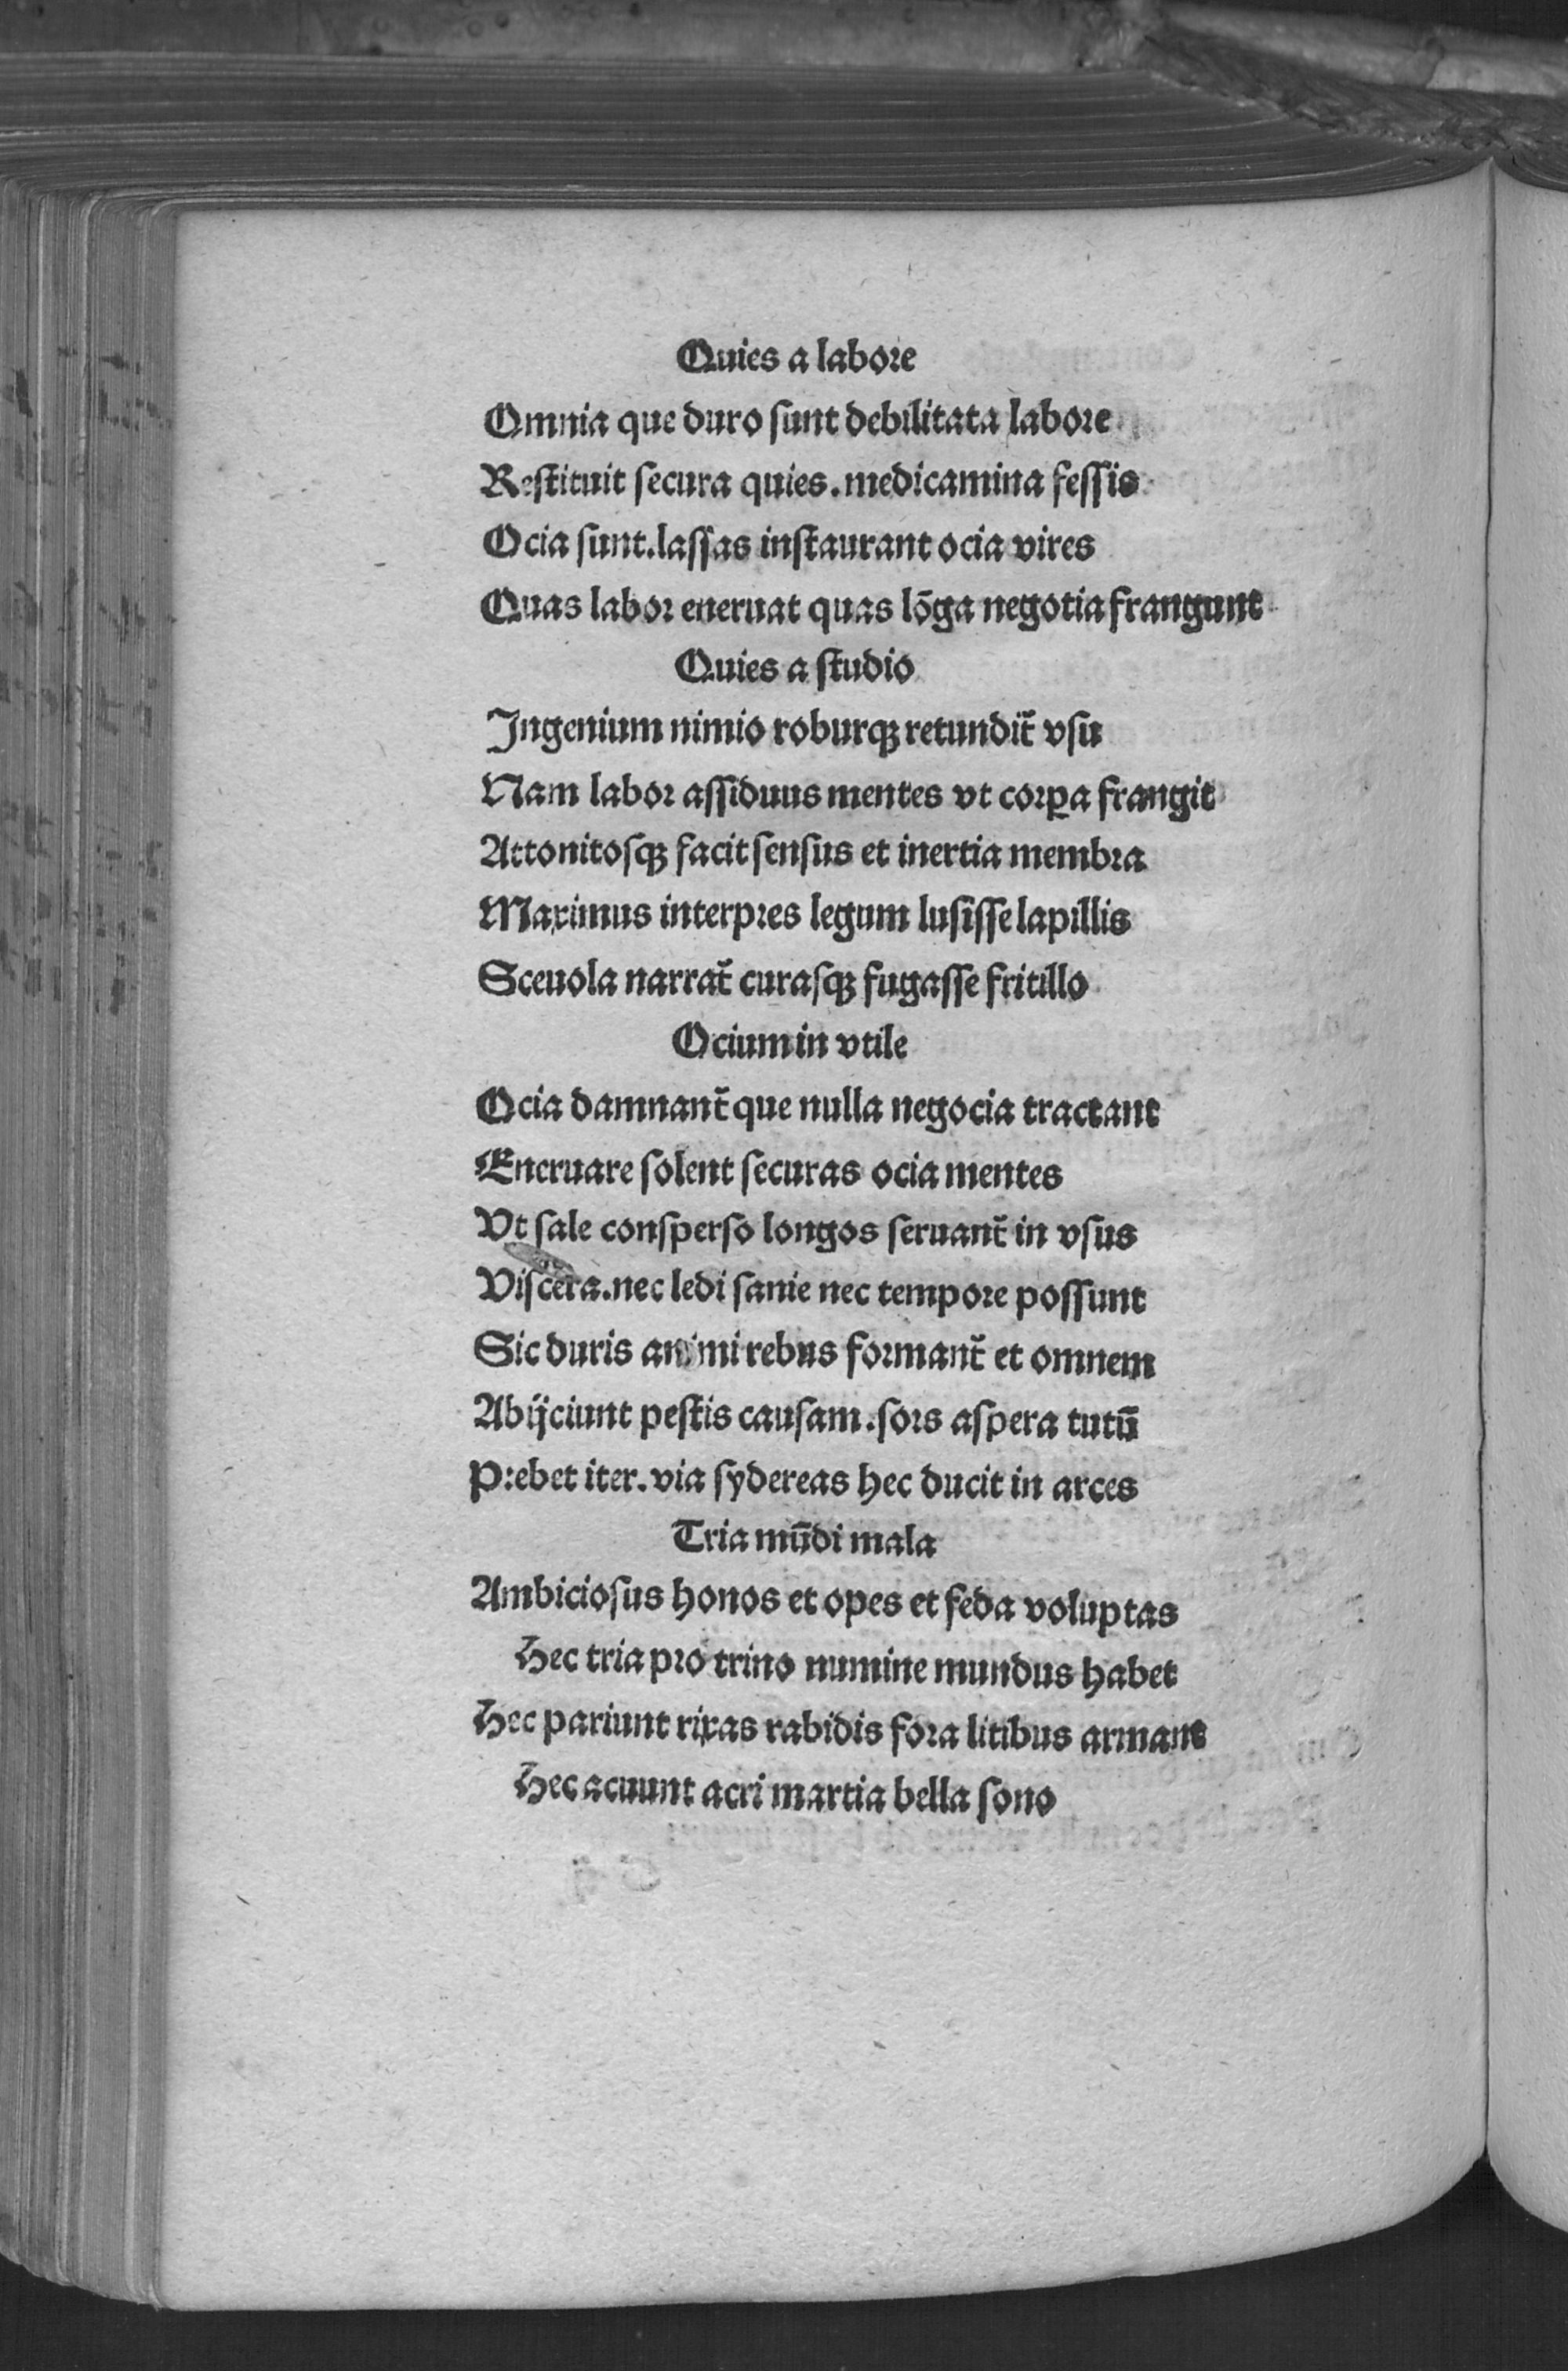 Quies a labore
Omnia que duro sunt debilitata labore
Restituit secura quies.medicamina fessis
Ocia sunt.lassas instaurant ocia vires
Quas labor eneruat quas lōga negotia frangunt
Quies a studio
Ingenium nimio roburqꝫ retundit᷑ vsu
Nam labor assiduus mentes vt corꝑa frangit
Attonitosqꝫ facit sensus et inertia membra
Maximus interpres legum lusisse lapillis
Sceuola narrat᷑ curasqꝫ fugasse fritillo
Ocium in vtile
Ocia damnant᷑ que nulla negocia tractant
Eneruare solent securas ocia mentes
Vt sale consperso longos seruant᷑ in vsus
Viscera.nec ledi sanie nec tempore possunt
Sic duris animi rebus formant᷑ et omnem
Abijciunt pestis causam.sors aspera tutū
Prebet iter.via sydereas hec ducit in arces
Tria mūdi mala
Ambiciosus honos et opes et feda voluptas
Hec tria pro trino numine mundus habet
Hec pariunt rixas rabidis fora litibus armant
Hec acuunt acri martia bella sono